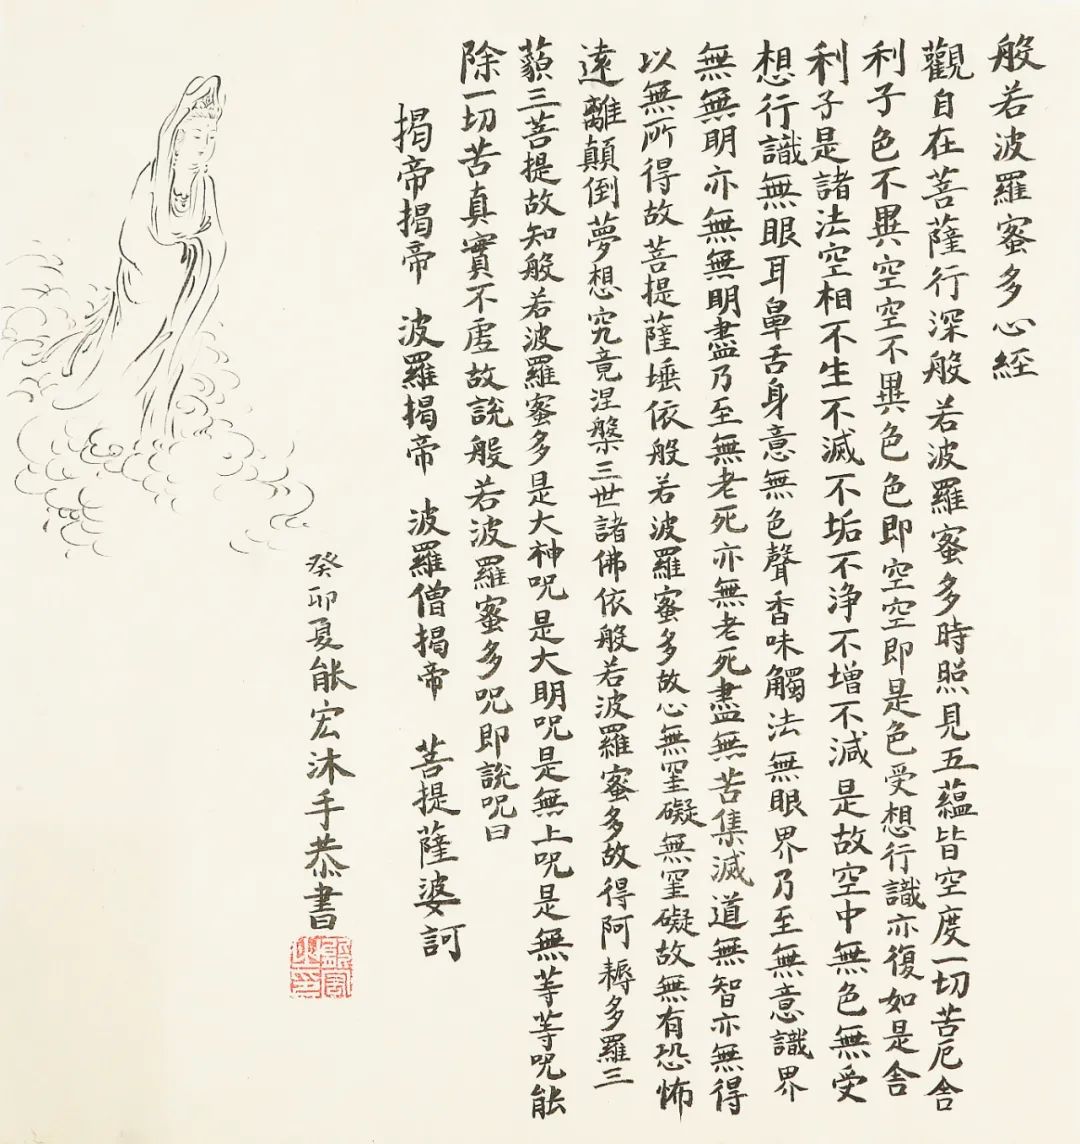 般若波羅蜜多心經
觀自在菩薩行深般若波羅蜜多時照見五蘊皆空度一切苦厄舍
利子色不異空空不異色色即空空即是色受想行識亦復如是舍
利子是諸法空相不生不滅不垢不浄不增不減是故空中無色無受
想行識無眼耳鼻舌身意無色聲香味觸法無眼界乃至無意識界
無無明亦無無明盡乃至無老死亦無老死盡無苦集滅道無智亦無得
以無所得故菩提薩埵依般若波羅蜜多故心無罣礙無罣礙故無有恐怖
遠離顛倒夢想究竟涅槃三世諸佛依般若波羅蜜多故得阿耨多羅三
藐三菩提故知般若波羅蜜多是大神呪是大明呪是無上呪是無等等呪能
除一切苦真實不虛故說般若波羅蜜多呪即說呪曰
揭帝揭帝 波羅揭帝 波羅僧揭帝 菩提薩婆訶
癸卯夏能宏沐手恭書